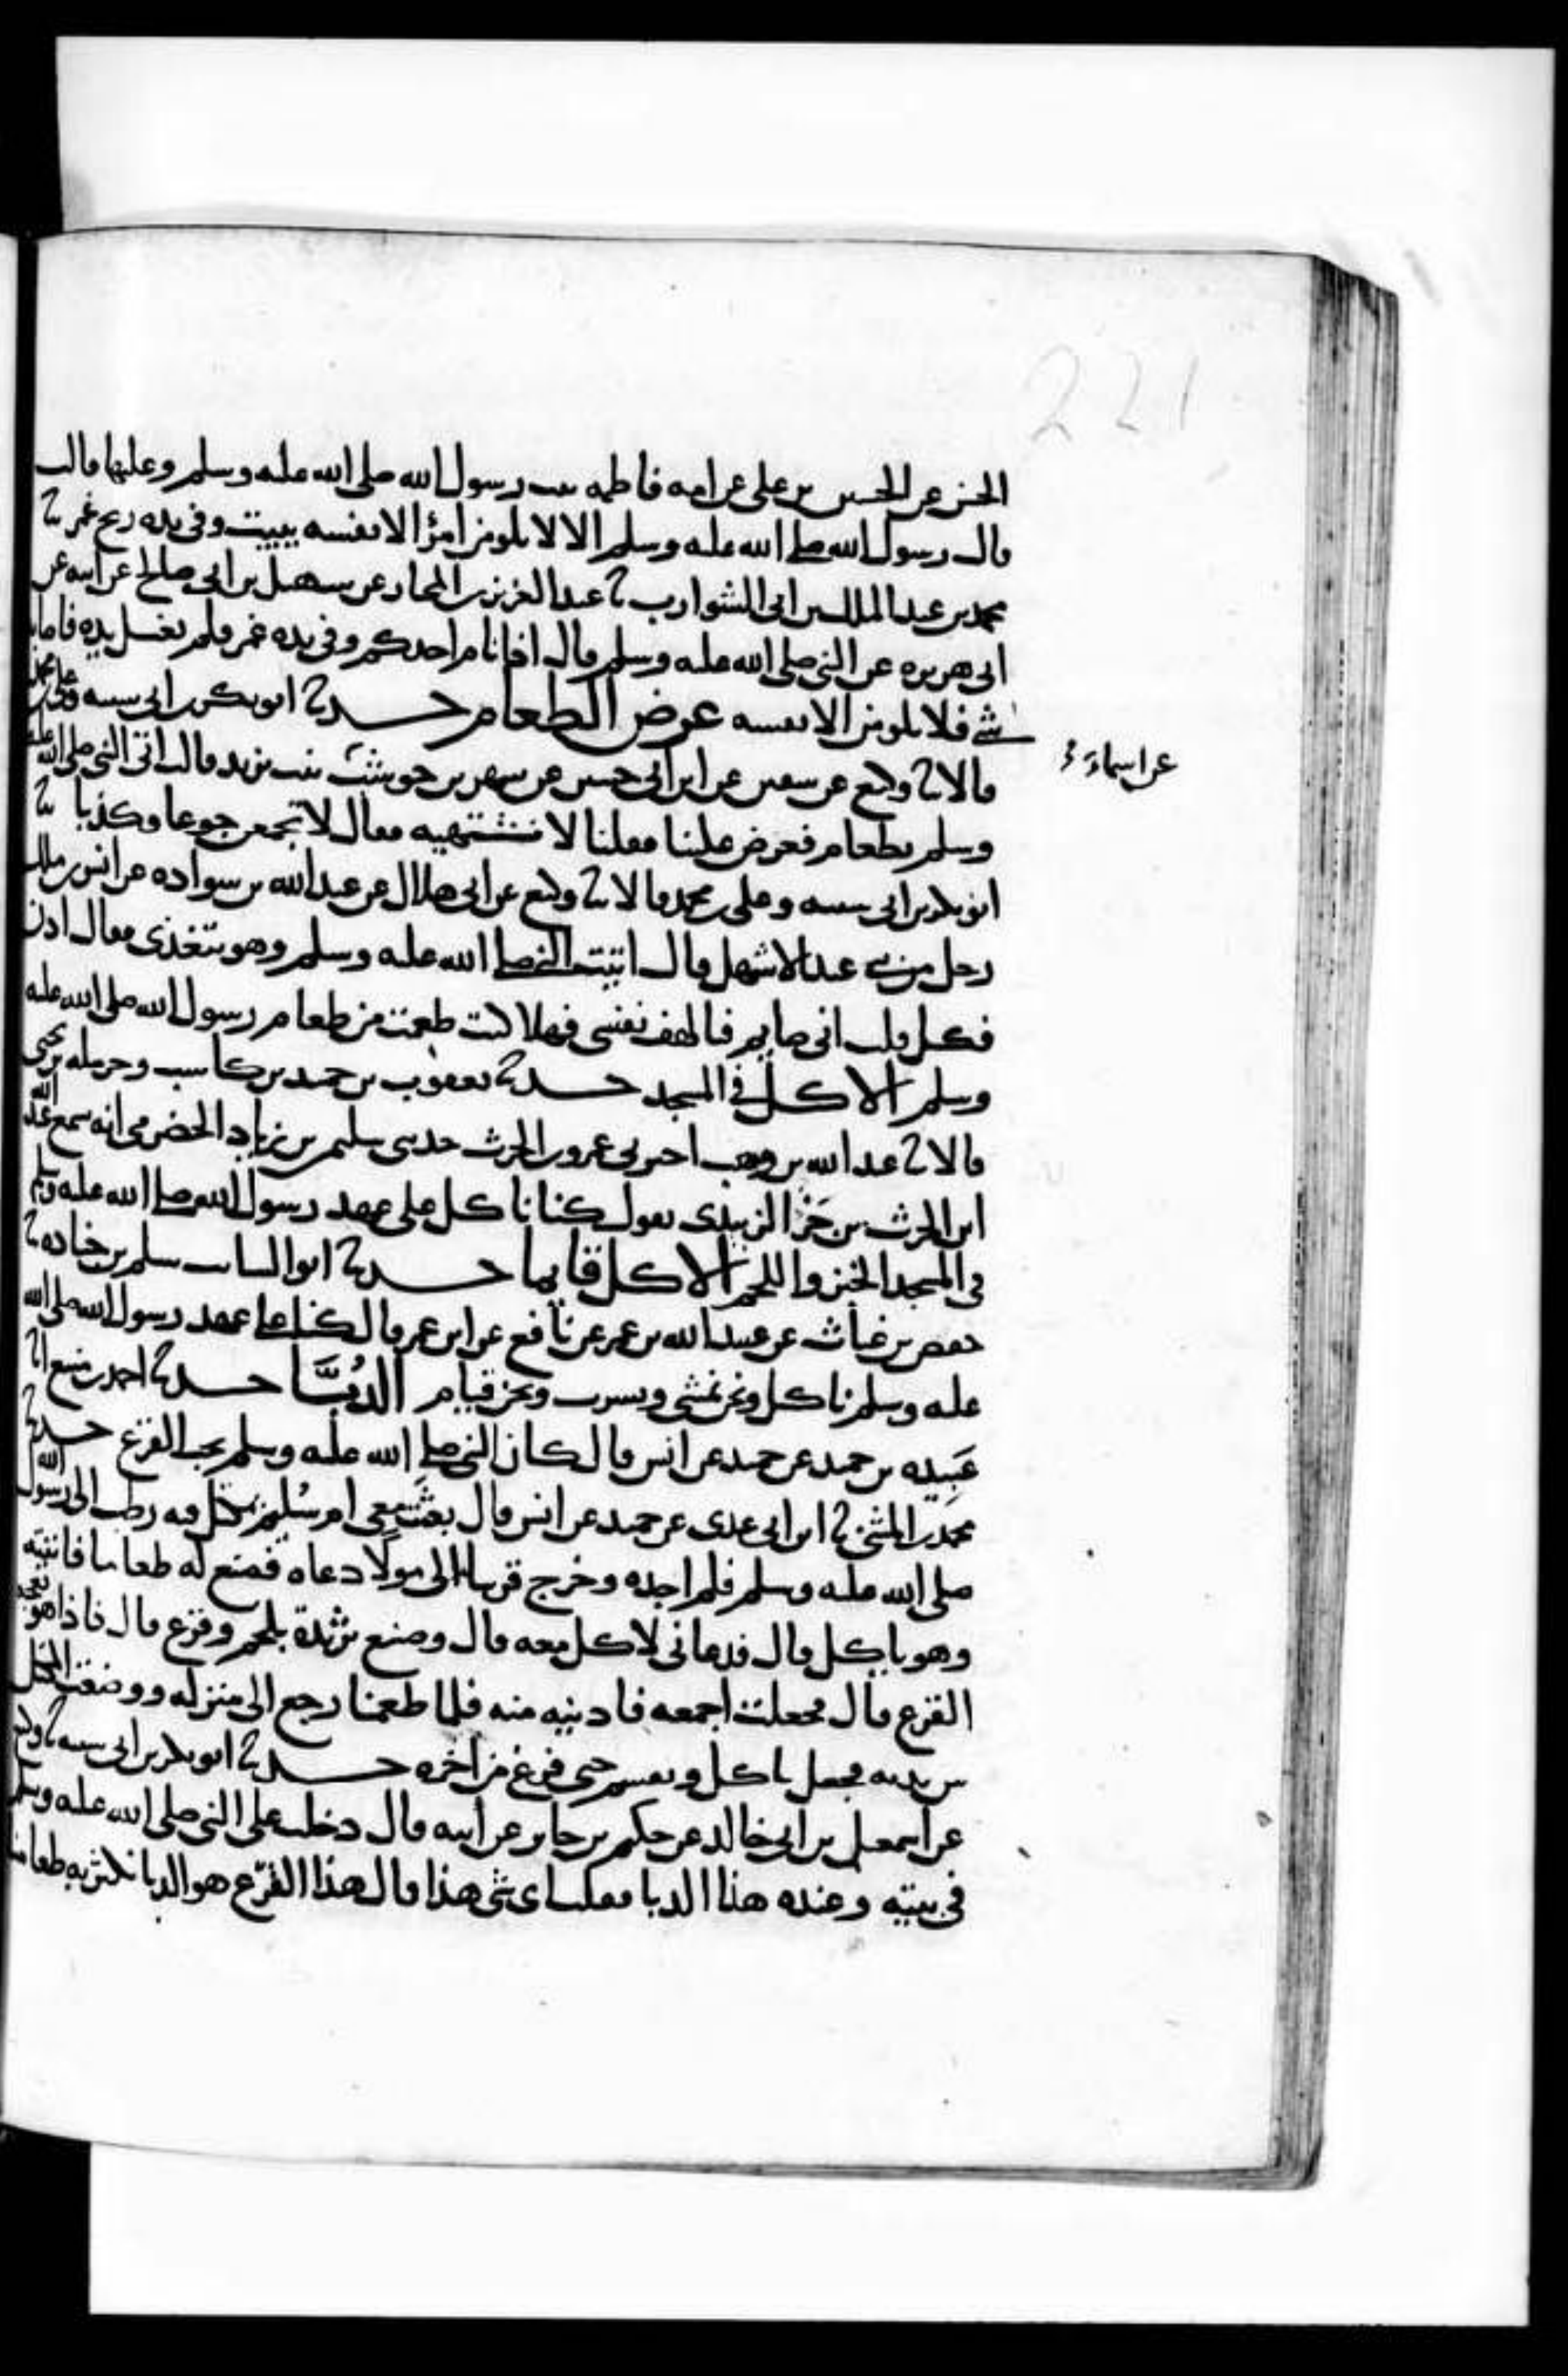 221
الحسن عن الحسين بن علي عن امه فاطمه بنت رسول الله صلى الله عليه وسلم وعليها قالت
قال رسول الله صلى الله عليه وسلم الا لا يلومن امرؤ الا نفسه يبيت وفي يده ريح غمر ثنا
محمد بن عبد الملك بن ابي الشوارب ثنا عبد العزيز بن المختار عن سهيل بن ابي صالح عن ابيه عن
ابي هريره عن النبي صلى الله عليه وسلم قال اذا نام احدكم وفي يده غمر فلم يغسل يده فاصابه
شي فلا يلومن الا نفسه عرض الطعام حدثنا ابو بكر بن ابي شيبه وعلي بن محمد
قالا ثنا وكيع عن سفين عن ابن ابي حسين عن شهر بن حوشب بنت يزيد قالت اتي النبي صلى الله عليه
عن اسماء
وسلم بطعام فعرض علينا فقلنا لا نشتهيه فقال لا تجمعن جوعا وكذبا ثنا
ابو بكر بن ابي شيبه وعلي بن محمد قالا ثنا وكيع عن ابي هلال عن عبد الله بن سواده عن انس بن ملك
رجل من بني عبد الاشهل قال اتيت النبي صلى الله عليه وسلم وهو يتغذى فقال ادن
فكل قلت اني صايم فيالهف نفسي فهلا كنت طعمت من طعام رسول الله صلى الله عليه
وسلم الاكل في المسجد حدثنا يعقوب بن حميد بن كاسب وحرمله بن يحيى
قالا ثنا عبد الله بن وهب اخبرني عمرو بن الحرث حدثني سليمن بن زياد الحضرمي انه سمع عبد الله
ابن الحرث بن جزء الزبيدي يقول كنا ناكل على عهد رسول الله صلى الله عليه وسلم
في المسجد الخبز واللحم الاكل قايما حدثنا ابو السايب سلم بن جناده ثنا
حفص بن غياث عن عبيد الله بن عمر عن نافع عن ابن عمر قال كنا على عهد رسول الله صلى الله
عليه وسلم ناكل ونحن نمشي ونشرب ونحن قيام الدُبَّا حدثنا احمد بن منيع انا
عَبيده بن حميد عن حميد عن انس قال كان النبي صلى الله عليه وسلم يحب القرع حدثنا
محمد بن المثنى ثنا ابن ابي عدي عن حميد عن انس قال بعثت معي ام سُليم بمكتل فيه رطب الى رسول الله
صلى الله عليه وسلم فلم اجده وخرج قريبا الى مولا دعاه فصنع له طعاما فاتيته
وهو ياكل قال فدعاني لاكل معه قال وصنع ثريدة بلحم وقرع قال فاذا هو يعجبه
القرع قال فجعلت اجمعه فادنيه منه فلما طعمنا رجع الى منزله ووضعت المكتل
بين يديه فجعل ياكل ويقسم حتى فرغ من اخره حدثنا ابو بكر بن ابي شيبه ثنا وكيع
عن اسمعيل بن ابي خالد عن حكيم بن جابر عن ابيه قال دخلت على النبي صلى الله عليه وسلم
في بيته وعنده هذا الدبا فقلت اي شي هذا قال هذا القرع هو الدبا نكثر به طعامنا